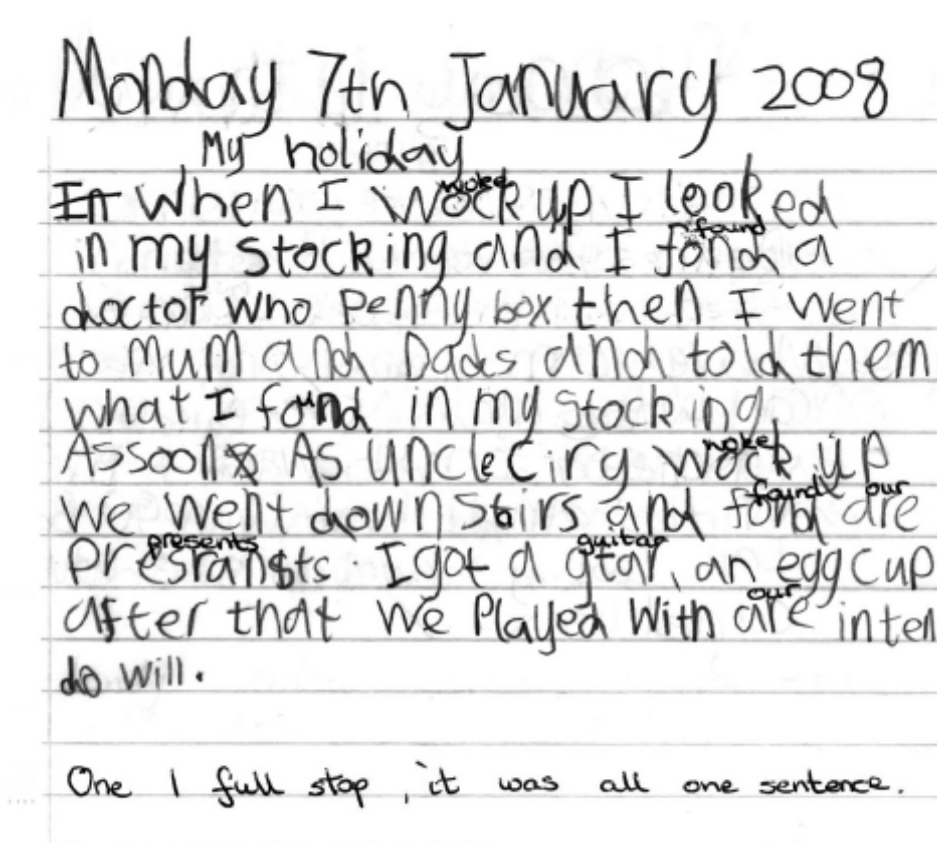 Monday 7th January 2008
My holiday
In When I wock up I looked
woke
in my stocking and I fond a
found
doctor who Penny box then I went
to Mum and Dads and told them
what I found in my stocking
Assoons As uncle Cirg wock up
woke
we went down stirs and fond are
found our
presransts. I got a gtar, an egg cup
presents guitar
after that we Played with are inten
our
do will.
One 1 full stop, it was all one sentence.